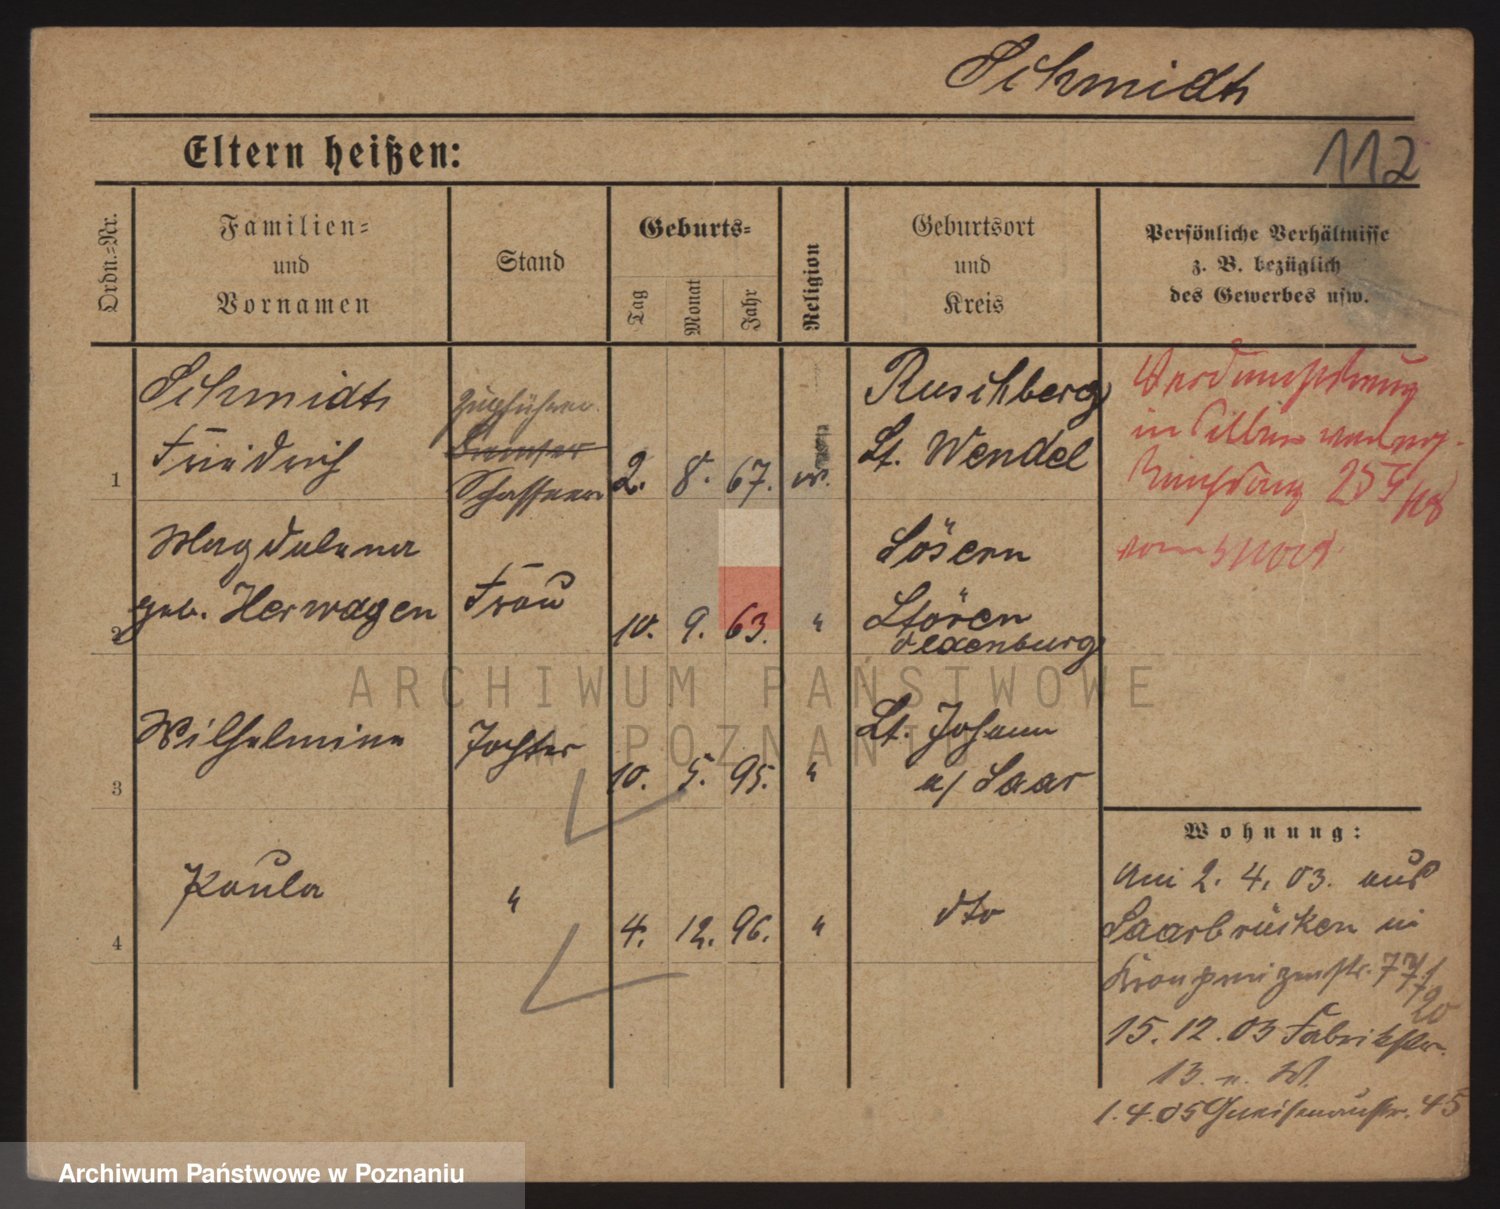 Schmidt
Eltern heißen:
112
Ordn.-Nr.
Familien-
und
Vornamen
Stand
Geburts-
Tag
Monat
Jahr
Religion
Geburtsort
und
Kreis
Persönliche Verhältnisse
z. B. bezüglich
des Gewerbes usw.
1
Schmidt
Friedrich
Zugführer
Schaffner
2. 8. 67.
Ruschberg
St. Wendel
2
Magdalena
geb. Herwagen
Frau
10. 9. 63. "
Lösern
Oldenburg
3
Wilhelmine
Tochter
10. 5. 95. "
St. Johann
a/ Saar
4
Paula
"
4. 12. 96. "
dto
in
259/18
vom
Wohnung:
Am 2. 4. 03. aus
Saarbrücken in
Kronprinzenstr. 77
15. 12. 03 Fabrikstr.
13. n. W.
1. 4. 05 Gneisenaustr. 45
ARCHIWUM PAŃSTWOWE
W POZNANIU
Archiwum Państwowe w Poznaniu